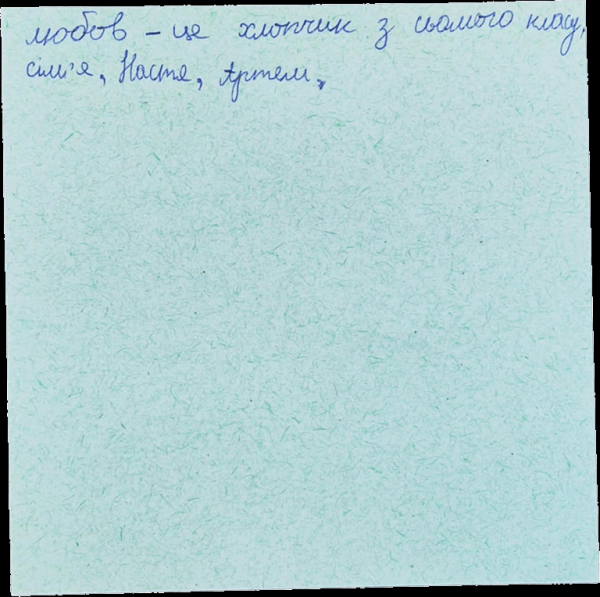 любов – це хлопчик з сьомого класу,
сім'я, Настя, Артем,